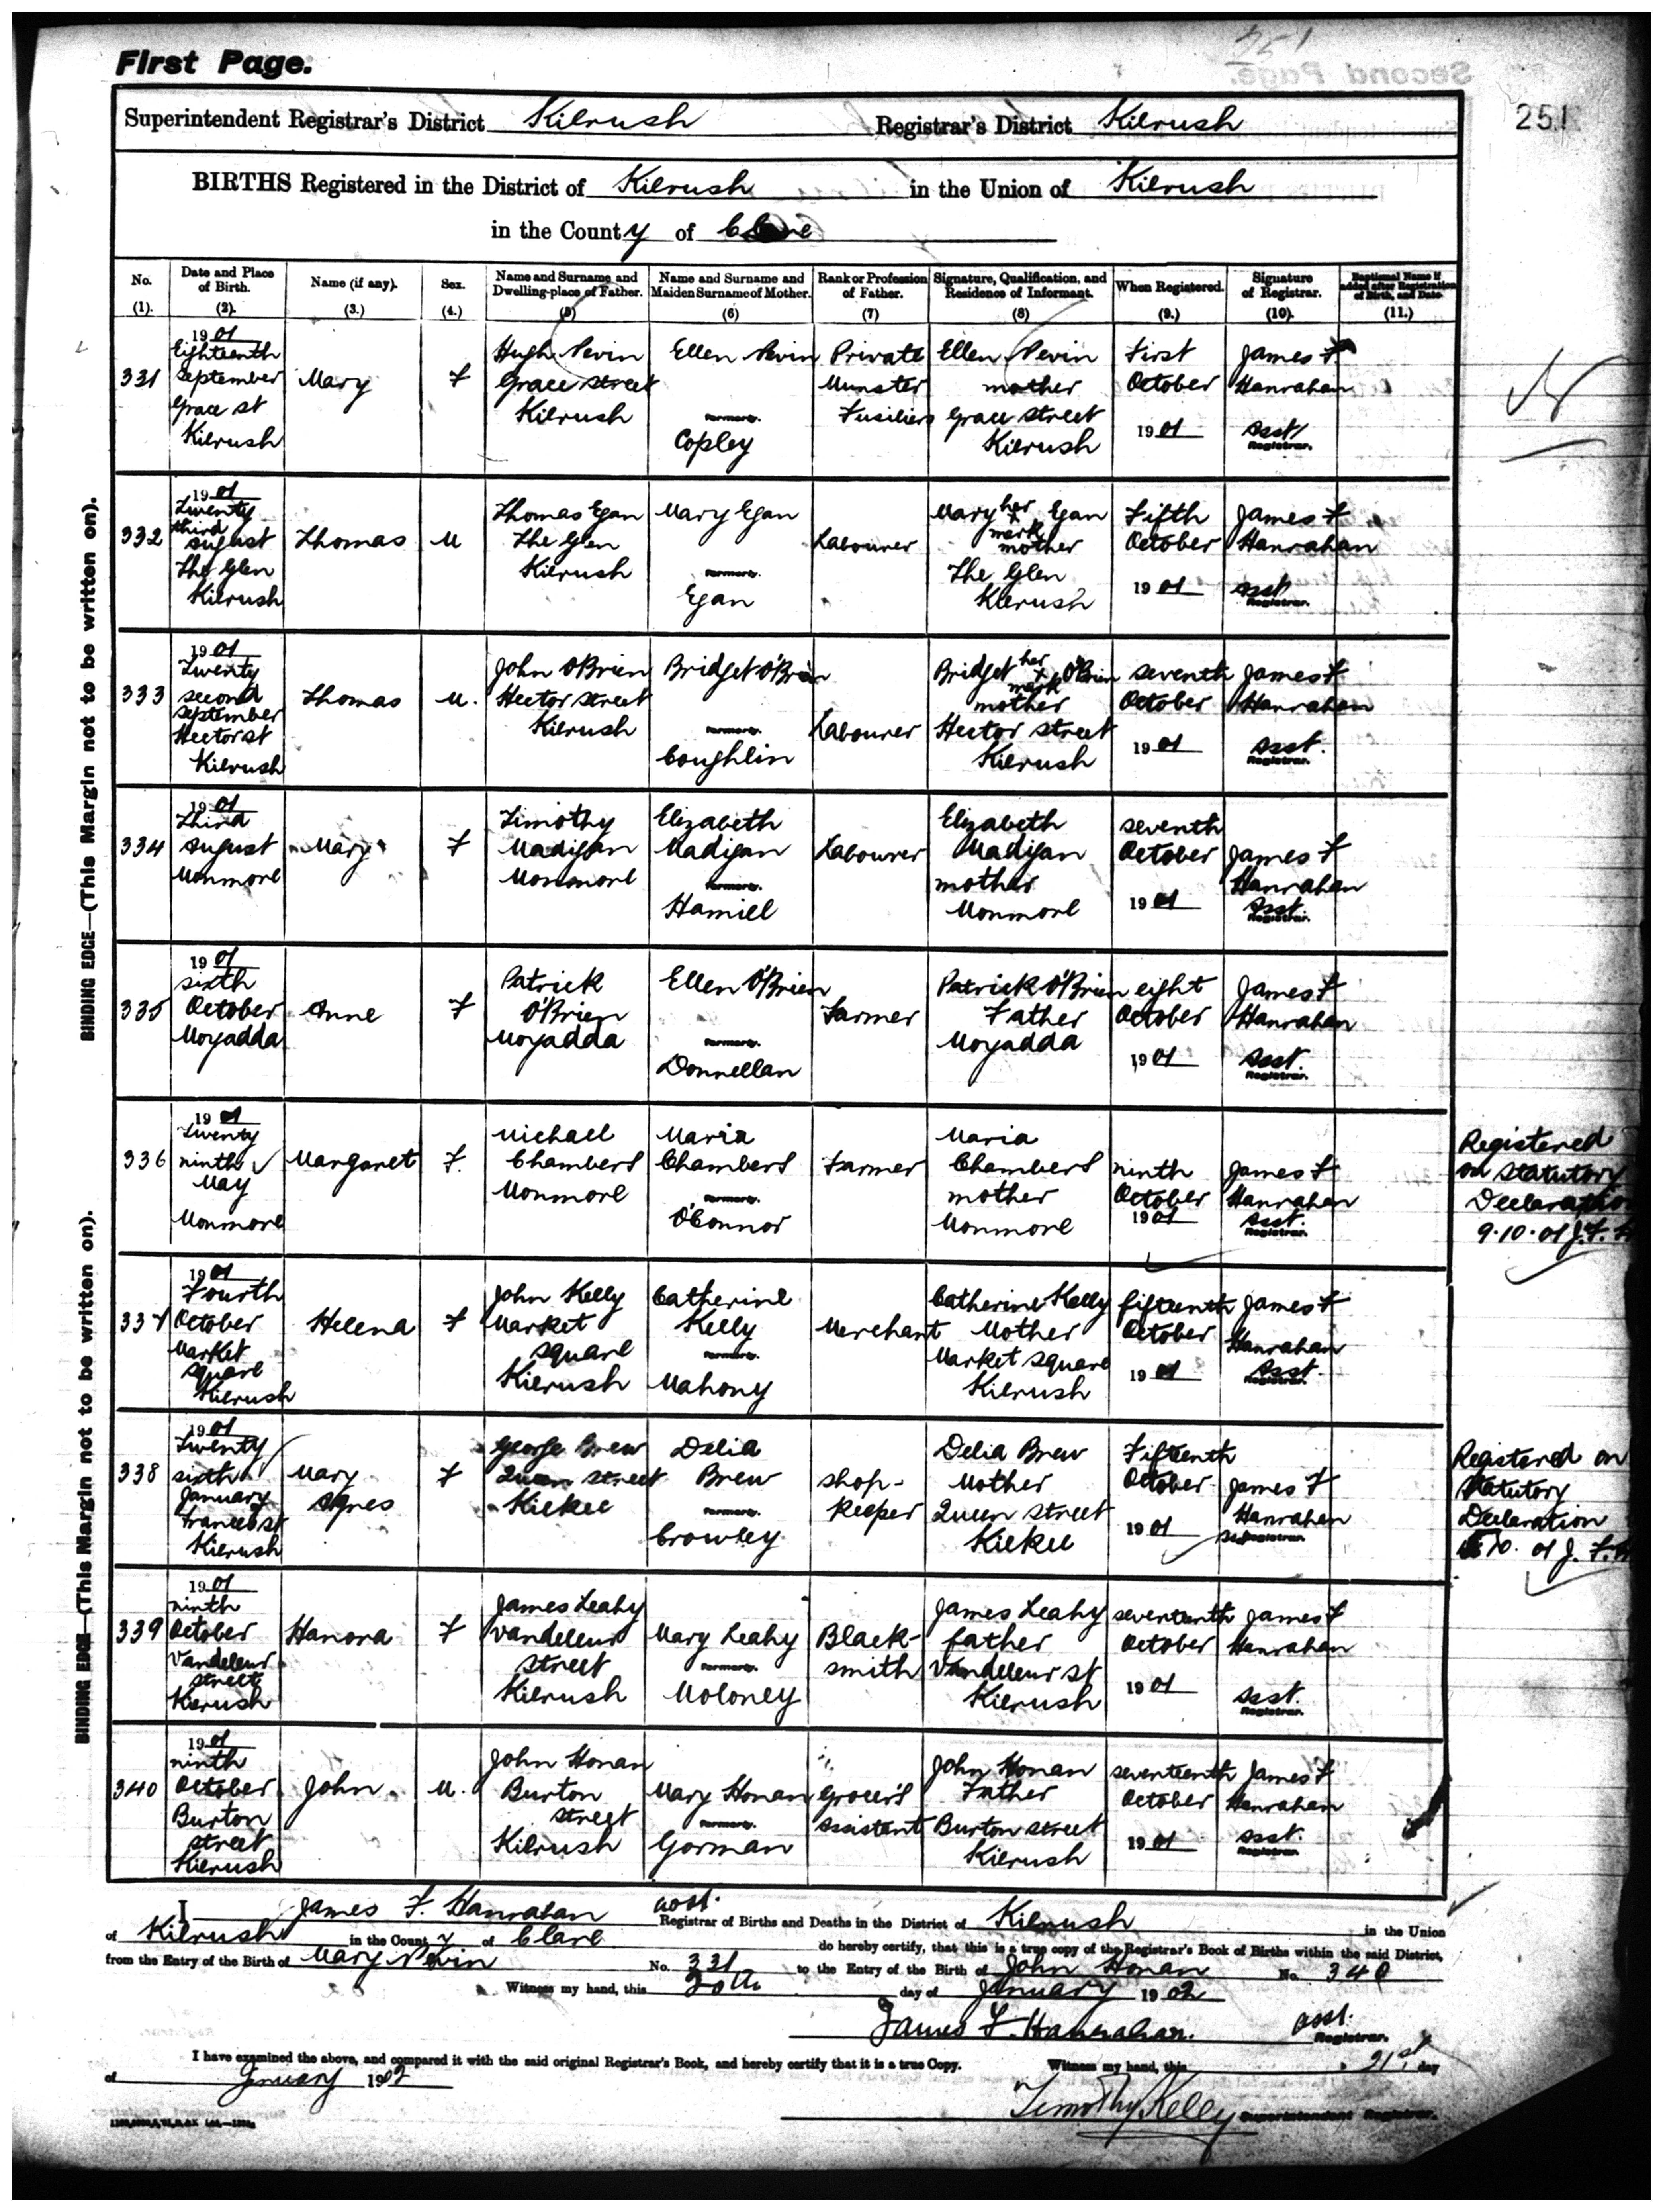 First Page.
251
Second Page.
251
Superintendent Registrar's District Kilrush Registrar's District Kilrush
BIRTHS Registered in the District of Kilrush in the Union of Kilrush
in the County of Clare
No. Date and Place of Birth. Name (if any). Sex. Name and Surname and Dwelling-place of Father. Name and Surname and Maiden Surname of Mother. Rank or Profession of Father. Signature, Qualification, and Residence of Informant. When Registered. Signature of Registrar. Baptismal Name if added after Registration of Birth, and Date.
(1). (2). (3.) (4.) (5) (6) (7) (8) (9.) (10). (11.)
331 1901 Eighteenth September Grace st Kilrush Mary F Hugh Nevin Grace street Kilrush Ellen Nevin formerly Copley Private Munster Fusiliers Ellen Nevin mother Grace street Kilrush First October 1901 James F Hanrahan Asst Registrar.
332 1901 Twenty third August The Glen Kilrush Thomas M Thomas Egan The Glen Kilrush Mary Egan formerly Egan Labourer Mary her x mark Egan mother The Glen Kilrush Fifth October 1901 James F Hanrahan Asst Registrar.
333 1901 Twenty second September Hector st Kilrush Thomas M. John O'Brien Hector street Kilrush Bridget O'Brien formerly Coughlin Labourer Bridget her x mark O'Brien mother Hector street Kilrush seventh October 1901 James F Hanrahan Asst. Registrar.
334 1901 Third August Monmore Mary F Timothy Madigan Monmore Elizabeth Madigan formerly Hamill Labourer Elizabeth Madigan mother Monmore seventh October 1901 James F Hanrahan Asst. Registrar.
335 1901 sixth October Moyadda Anne F Patrick O'Brien Moyadda Ellen O'Brien formerly Donnellan Farmer Patrick O'Brien Father Moyadda eight October 1901 James F Hanrahan Asst. Registrar.
336 1901 Twenty ninth May Monmore Margaret F. Michael Chambers Monmore Maria Chambers formerly O'Connor Farmer Maria Chambers mother Monmore ninth October 1901 James F Hanrahan Asst. Registrar.
Registered
on Statutory
Declaration
9.10.01 J.F.H
337 1901 Fourth October Market square Kilrush Helena F John Kelly Market square Kilrush Catherine Kelly formerly Mahony Merchant Catherine Kelly Mother Market square Kilrush fifteenth October 1901 James F Hanrahan Asst. Registrar.
338 1901 Twenty sixth January Frances st Kilrush Mary Agnes F George Brew Queen street Kilkee Delia Brew formerly Crowley shop-keeper Delia Brew Mother Queen street Kilkee Fifteenth October 1901 James F Hanrahan Registrar.
Registered on
Statutory
Declaration
10. 01 J. F. H
339 1901 ninth October Vandeleur street Kilrush Hanora F James Leahy Vandeleur street Kilrush Mary Leahy formerly Moloney Black-smith James Leahy father Vandeleur st Kilrush seventeenth October 1901 James F Hanrahan Asst. Registrar.
340 1901 ninth October Burton street Kilrush John M. John Honan Burton street Kilrush Mary Honan formerly Gorman Grocer's assistant John Honan Father Burton street Kilrush seventeenth October 1901 James F Hanrahan Asst. Registrar.
I James F. Hanrahan asst. Registrar of Births and Deaths in the District of Kilrush in the Union
of Kilrush in the County of Clare do hereby certify, that this is a true copy of the Registrar's Book of Births within the said District,
from the Entry of the Birth of Mary Nevin No. 331 to the Entry of the Birth of John Honan No. 340
Witness my hand, this 20th day of January 1902
James F. Hanrahan. asst. Registrar.
I have examined the above, and compared it with the said original Registrar's Book, and hereby certify that it is a true Copy. Witness my hand, this 21st day
of January 1902
Timothy Kelly Superintendent Registrar.
BINDING EDGE—(This Margin not to be written on).
BINDING EDGE—(This Margin not to be written on).